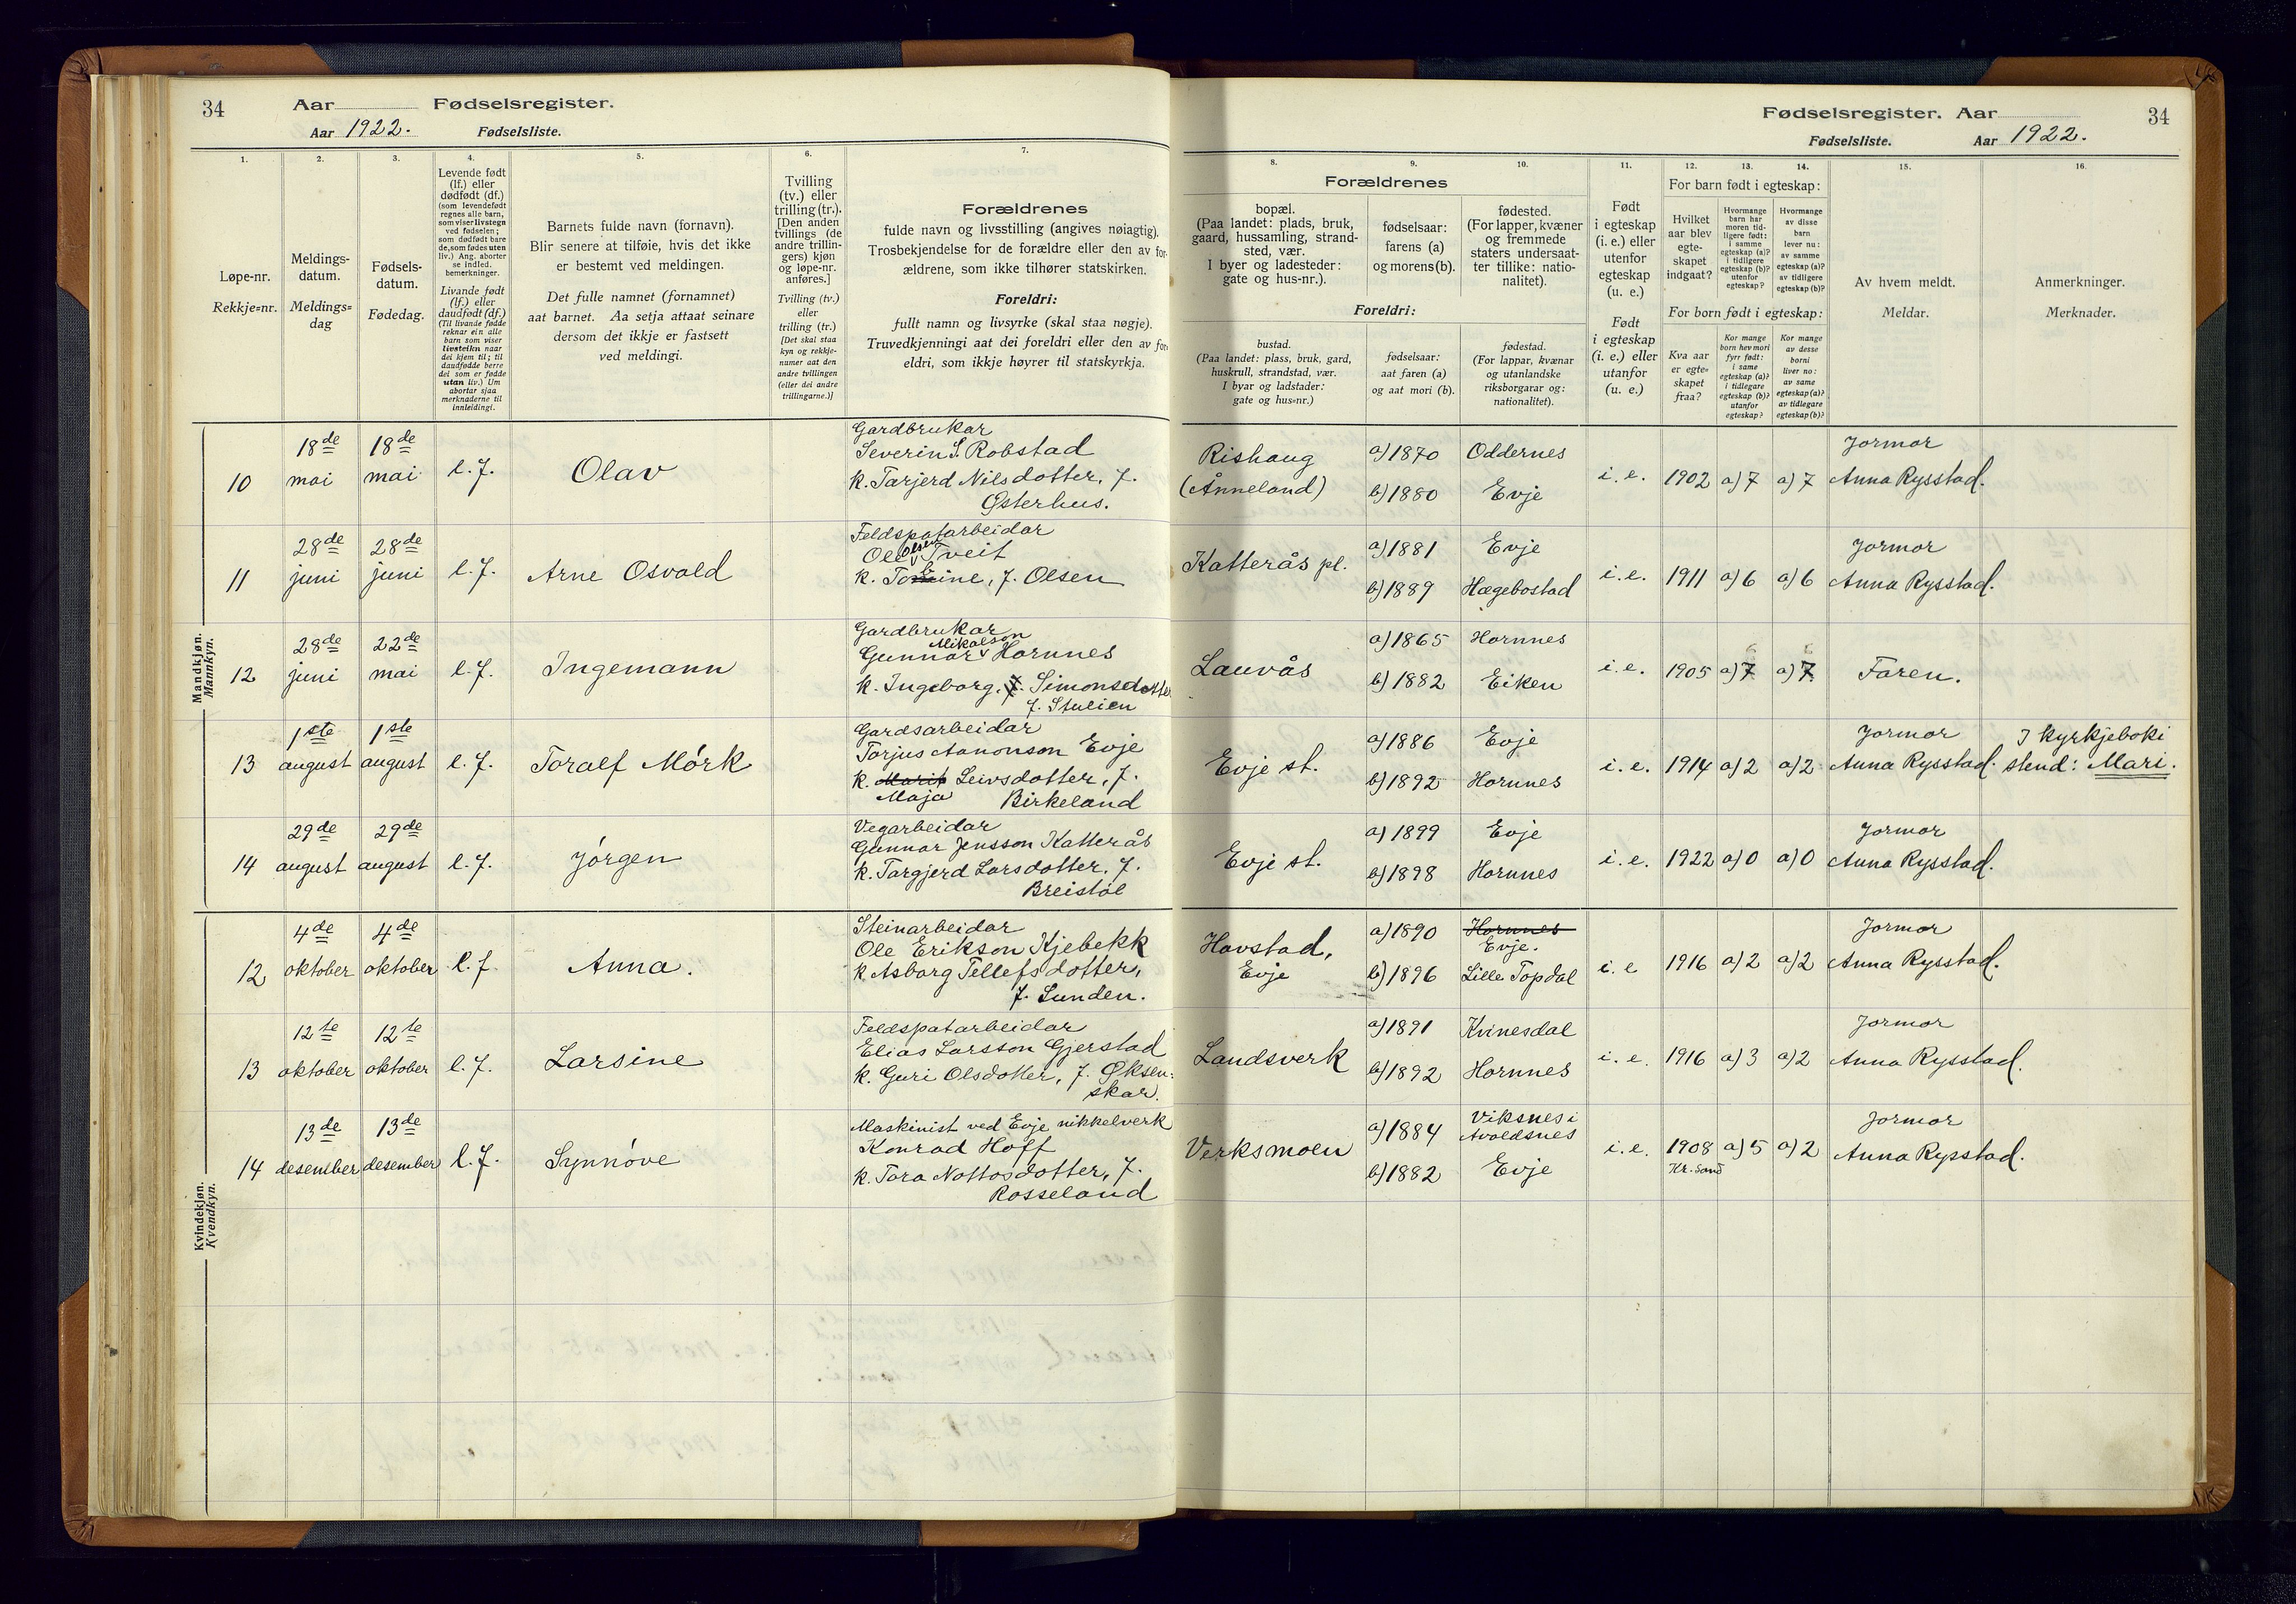 34 Aar Fødselsregister.
Aar 1922. Fødselsliste.
1. 2. 3. 4. 5. 6. 7.
Løpe-nr.
Rekkje=nr.
Meldings-
datum.
Meldings=
dag
Fødsels-
datum.
Fødedag.
Levende født
(lf.) eller
dødfødt (df.)
(som levendefødt
regnes alle barn,
som viser livstegn
ved fødselen;
som dødfødt bare
de, som fødes uten
liv.) Ang. aborter
se indled.
bemerkninger.
Livande født
(lf.) eller
daudfødt (df.)
(Til livande fødde
reknar ein alle
barn som viser
livsteikn naar
dei kjem til; til
daudfødde berre
dei som er fødde
utan liv.) Um
abortar sjaa
merknaderne til
innleidingi.
Barnets fulde navn (fornavn).
Blir senere at tilføie, hvis det ikke
er bestemt ved meldingen.
Det fulle namnet (fornamnet)
aat barnet. Aa setja attaat seinare
dersom det ikkje er fastsett
ved meldingi.
Tvilling
(tv.) eller
trilling (tr.).
[Den anden
tvillings (de
andre trillin-
gers) kjøn
og løpe-nr.
anføres.]
Tvilling (tv.)
eller
trilling (tr.)
[Det skal staa
kyn og rekkje-
numer aat den
andre tvillingen
(eller dei andre
trillingarne.)]
Forældrenes
fulde navn og livsstilling (angives nøiagtig).
Trosbekjendelse for de forældre eller den av for-
ældrene, som ikke tilhører statskirken.
Foreldri:
fullt namn og livsyrke (skal staa nøgje).
Truvedkjenningi aat dei foreldri eller den av for-
eldri, som ikkje høyrer til statskyrkja.
Mandkjøn.
Mannkyn.
10 18de mai 18de mai l.f. Olav
Gardbrukar
Severin S. Robstad
k. Tarjerd Nilsdotter, f.
Østerhus.
11 28de juni 28de juni l.f. Arne Osvald
Feldspatarbeidar
Ole Olsen Tveit
k. ine, f. Olsen
12 28de juni 22de mai l.f. Ingemann
Gardbrukar
Gunnar Mikalson Hornnes
k. Ingeborg, Simonsdotter
f. Stulien
13 1ste august 1ste august l.f. Toralf Mørk
Gardsarbeidar
Torjus Aanonson Evje
k. Leivsdotter, f.
Maja Birkeland
14 29de august 29de august l.f. Jørgen
Vegarbeidar
Gunnar Jensson Katterås
k. Targjerd Larsdotter, f.
Breistøl
Kvindekjøn.
Kvendkyn.
12 4de oktober 4de oktober l.f. Anna.
Steinarbeidar
Ole Erikson Kjebekk
k. Asborg Tellefsdotter,
f. Lunden.
13 12te oktober 12te oktober l.f. Larsine
Feldspatarbeidar
Elias Larsson Gjerstad
k. Guri Olsdotter, f. Øksen=
skar.
14 13de desember 13de desember l.f. Synnøve
Maskinist ved Evje nikkelverk
Konrad Hoff
k. Tora Nottosdotter, f.
Rosseland
Fødselsregister. Aar 34
Fødselsliste. Aar 1922.
8. 9. 10. 11. 12. 13. 14. 15. 16.
Forældrenes
bopæl.
(Paa landet: plads, bruk,
gaard, hussamling, strand-
sted, vær.
I byer og ladesteder:
gate og hus-nr.).
fødselsaar:
farens (a)
og morens (b).
fødested.
(For lapper, kvæner
og fremmede
staters undersaat-
ter tillike: natio-
nalitet).
Foreldri:
bustad.
(Paa landet: plass, bruk, gard,
huskrull, strandstad, vær.
I byar og ladstader:
gate og hus=nr.)
fødselsaar:
aat faren (a)
og aat mori (b).
fødestad.
(For lappar, kvænar
og utanlandske
riksborgarar og:
nationalitet).
Født
i egteskap
(i. e.) eller
utenfor
egteskap
(u. e.)
Født
i egteskap
(i. e.) eller
utanfor
(u. e.)
For barn født i egteskap:
Hvilket
aar blev
egte-
skapet
indgaat?
Hvormange
barn har
moren tid-
ligere født:
i samme
egteskap (a)?
i tidligere
egteskap (b)?
utenfor
egteskap?
Hvormange
av disse
barn
lever nu:
av samme
egteskap (a)?
av tidligere
egteskap (b)?
For born født i egteskap:
Kva aar
er egte=
skapet
fraa?
Kor mange
born hev mori
fyrr født:
i same
egteskap (a)?
i tidlegare
egteskap (b)?
utanfor
egteskap?
Kor mange
av desse
borni
liver no:
av same
egteskap (a)?
av tidlegare
egteskap (b)?
Av hvem meldt.
Meldar.
Anmerkninger.
Merknader.
Rishaug (Ånneland) a) 1870 Oddernes b) 1880 Evje i.e. 1902 a) 7 a) 7 Jormor Anna Rysstad.
Katterås pl. a) 1881 Evje b) 1889 Hægebostad i.e. 1911 a) 6 a) 6 Jormor Anna Rysstad.
Lauvås a) 1865 Hornnes b) 1882 Eiken i.e. 1905 a) 7 a) 7 Faren.
Evje st. a) 1886 Evje b) 1892 Hornnes i.e. 1914 a) 2 a) 2 Jormor Anna Rysstad. I kyrkjeboki stend: Mari.
Evje st. a) 1899 Evje b) 1898 Hornnes i.e. 1922 a) 0 a) 0 Jormor Anna Rysstad.
Havstad, Evje a) 1890 Hornnes Evje. b) 1896 Lille Topdal i.e 1916 a) 2 a) 2 Jormor Anna Rysstad.
Landsverk a) 1891 Kvinesdal b) 1892 Hornnes i.e. 1916 a) 3 a) 2 Jormor Anna Rysstad.
Verksmoen a) 1884 Viksnes i Avaldsnes b) 1882 Evje i.e. 1908 Kr. Sand a) 5 a) 2 Jormor Anna Rysstad.